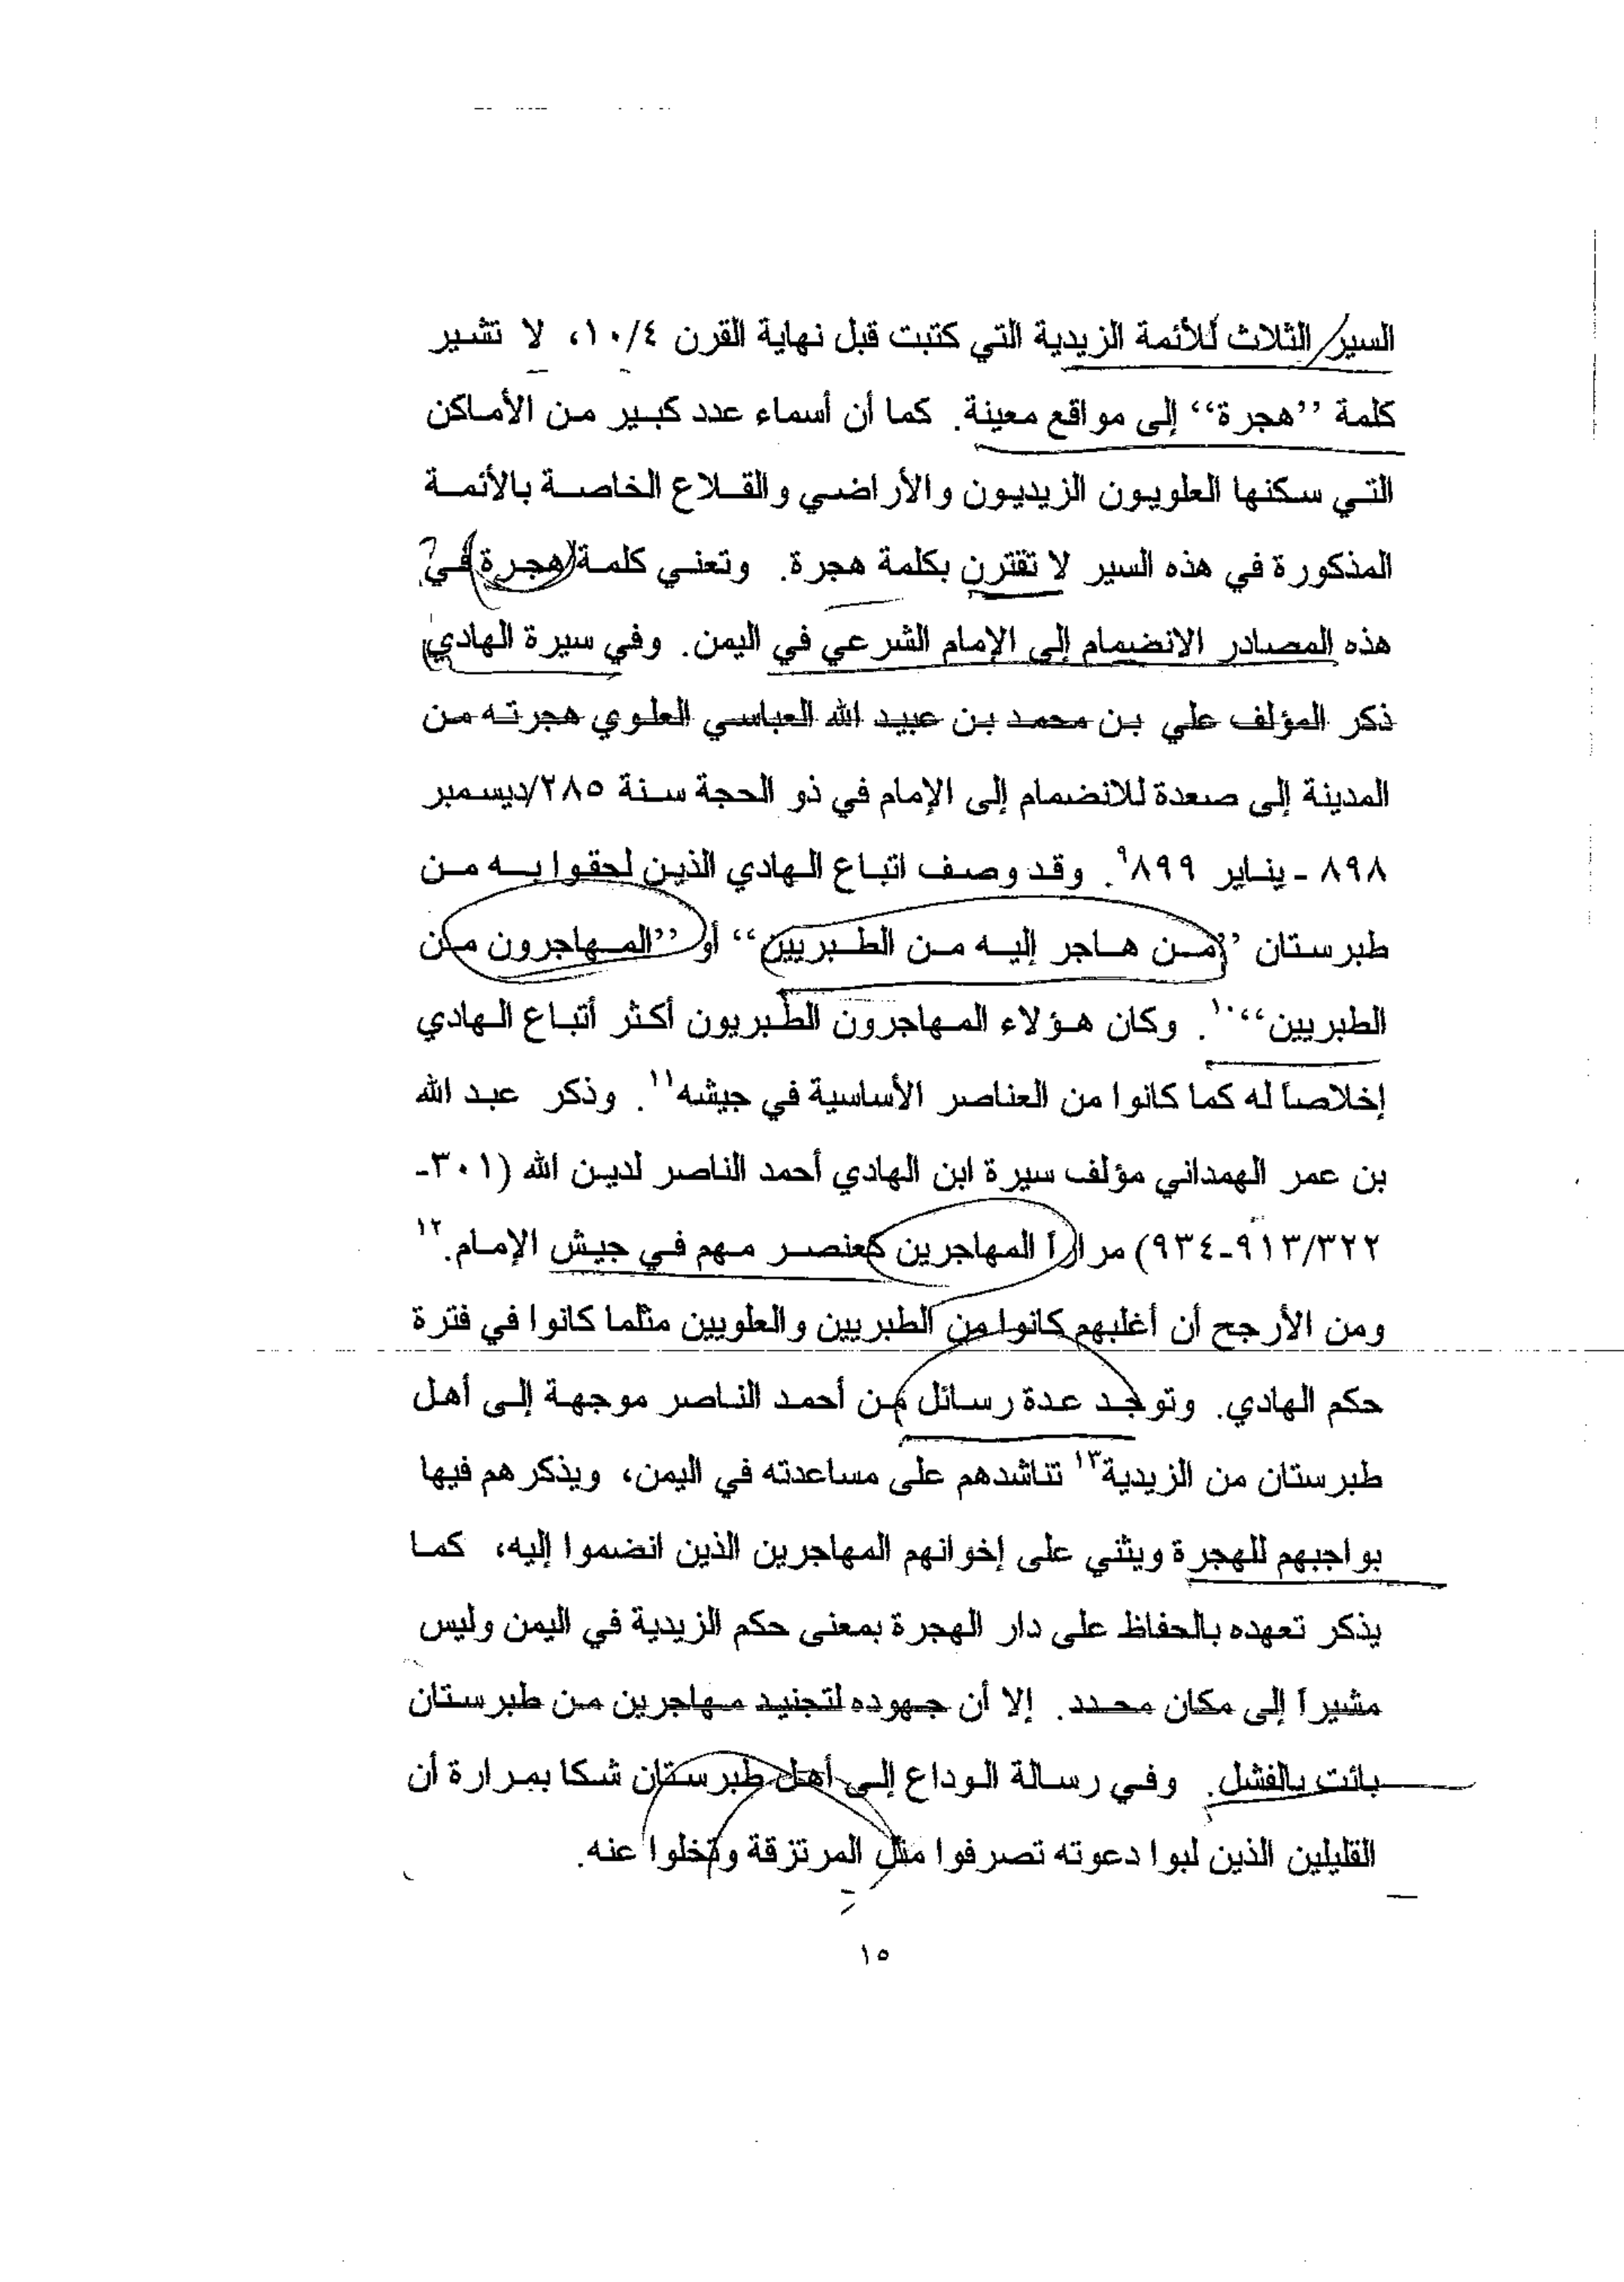 السير الثلاث للأئمة الزيدية التي كتبت قبل نهاية القرن ١٠/٤، لا تشير
كلمة ”هجرة“ إلى مواقع معينة. كما أن أسماء عدد كبير من الأماكن
التي سكنها العلويون الزيديون والأراضي والقلاع الخاصة بالأئمة
المذكورة في هذه السير لا تقترن بكلمة هجرة. وتعني كلمة (هجرة) في
هذه المصادر الانضمام إلى الإمام الشرعي في اليمن. وفي سيرة الهادي
ذكر المؤلف علي بن محمد بن عبيد الله العباسي العلوي هجرته من
المدينة إلى صعدة للانضمام إلى الإمام في ذو الحجة سنة ٢٨٥/ديسمبر
٨٩٨ - يناير ٨٩٩٩. وقد وصف اتباع الهادي الذين لحقوا به من
طبرستان ”من هاجر إليه من الطبريين“ أو ”المهاجرون من
الطبريين“١٠. وكان هؤلاء المهاجرون الطبريون أكثر أتباع الهادي
إخلاصاً له كما كانوا من العناصر الأساسية في جيشه١١. وذكر عبد الله
بن عمر الهمداني مؤلف سيرة ابن الهادي أحمد الناصر لدين الله (٣٠١-
٩١٣/٣٢٢-٩٣٤) مراراً المهاجرين كعنصر مهم في جيش الإمام.١٢
ومن الأرجح أن أغلبهم كانوا من الطبريين والعلويين مثلما كانوا في فترة
حكم الهادي. وتوجد عدة رسائل من أحمد الناصر موجهة إلى أهل
طبرستان من الزيدية١٣ تناشدهم على مساعدته في اليمن، ويذكرهم فيها
بواجبهم للهجرة ويثني على إخوانهم المهاجرين الذين انضموا إليه، كما
يذكر تعهده بالحفاظ على دار الهجرة بمعنى حكم الزيدية في اليمن وليس
مشيراً إلى مكان محدد. إلا أن جهوده لتجنيد مهاجرين من طبرستان
بائت بالفشل. وفي رسالة الوداع إلى أهل طبرستان شكا بمرارة أن
القليلين الذين لبوا دعوته تصرفوا مثل المرتزقة وتخلوا عنه.
١٥